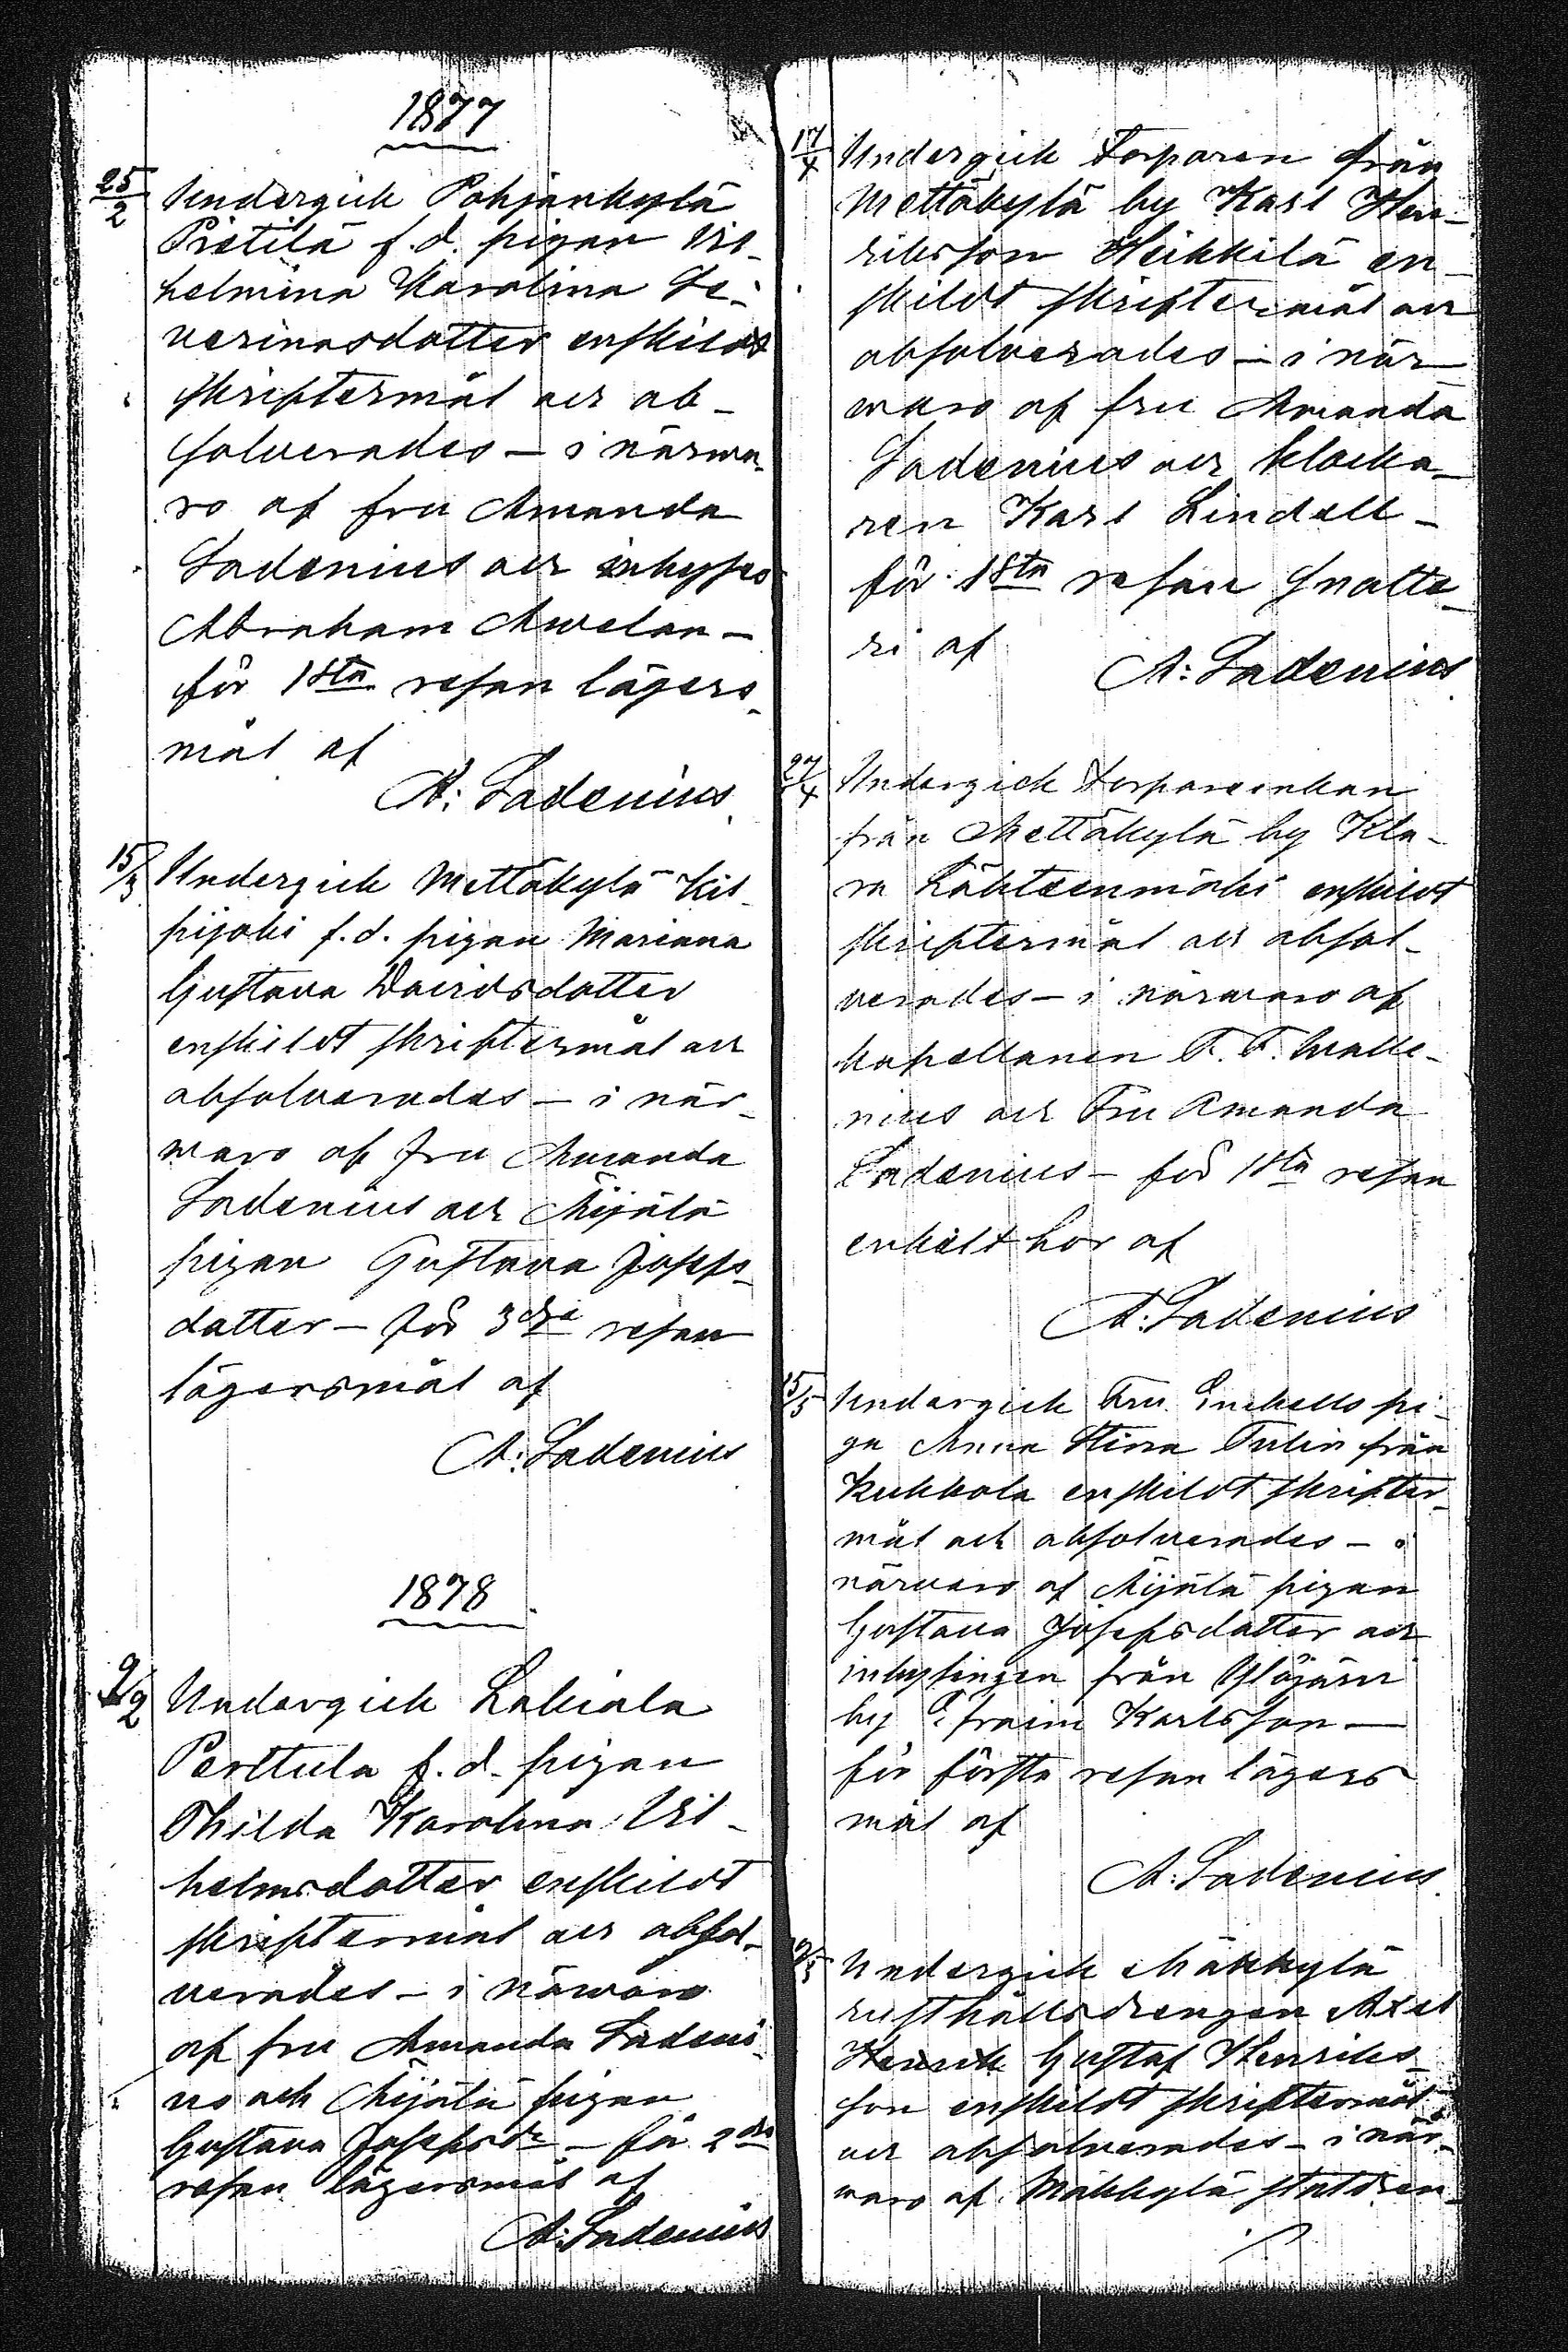 1877
25/2 Undergick Pohjankylä
Pietilä f.d. pigan Vil-
helmina Karolina Se-
verinasdotter enskildt
skriftermål och ab-
solverades – i närwa-
ro af fru Amanda
Ladenius och inhyses
Abraham Awelan –
för 1sta resan lägers-
mål af
A: Ladenius
15/3 Undergick Mettäkylä Kil-
pijoki f.d. pigan Mariana
Gustava Davidsdotter
enskildt skriftermål och
absolverades – i när-
waro af fru Amanda
Ladenius och Äijälä
pigan Gustava Josefs-
dotter – för 3dje resan
lägersmål af
A: Ladenius
1878
9/2 Undergick Lakiala
Perttula f.d. pigan
Thilda Karolina Vil-
helmsdotter enskildt
skriftermål och absol-
verades – i närwaro
af fru Amanda Ladeni-
us och Äijälä pigan
Gustava Josefsdr – för 2dra
resan lägersmål af
A: Ladenius
17/4 Undergick Torparen från
Mettäkylä by Karl Hen-
riksson Heikkilä en-
skildt skriftermål och
absolverades – i när-
waro af fru Amanda
Ladenius och klocka-
ren Karl Lindell –
för 1sta resan snatte-
ri af
A: Ladenius
27/4 Undergick Torpareenkan
från Mettäkylä by Kla-
ra Lähteenmäki enskildt
skriftermål och absol-
verades – i närwaro af
kapellanen F. F. Walle-
nius och Fru Amanda
Ladenius – för 1sta resan
enkelt hor af
A: Ladenius
15/5 Undergick Fru pi-
ga Anna Stina Tulin från
Kukkola enskildt skrifter-
mål och absolverades – i
närvaro af Äijälä pigan
Gustava Josefsdotter och
inhysingen från Ylöjärvi
by Efraim Karlsson –
för första resan lägers
mål af
A: Ladenius
Undergick Mäkkylä
rusthållsdrengen Axel
Henrik Gustaf Henriks-
son enskildt skriftermål
och absolverades – i när-
waro af Mäkkylä statdren-